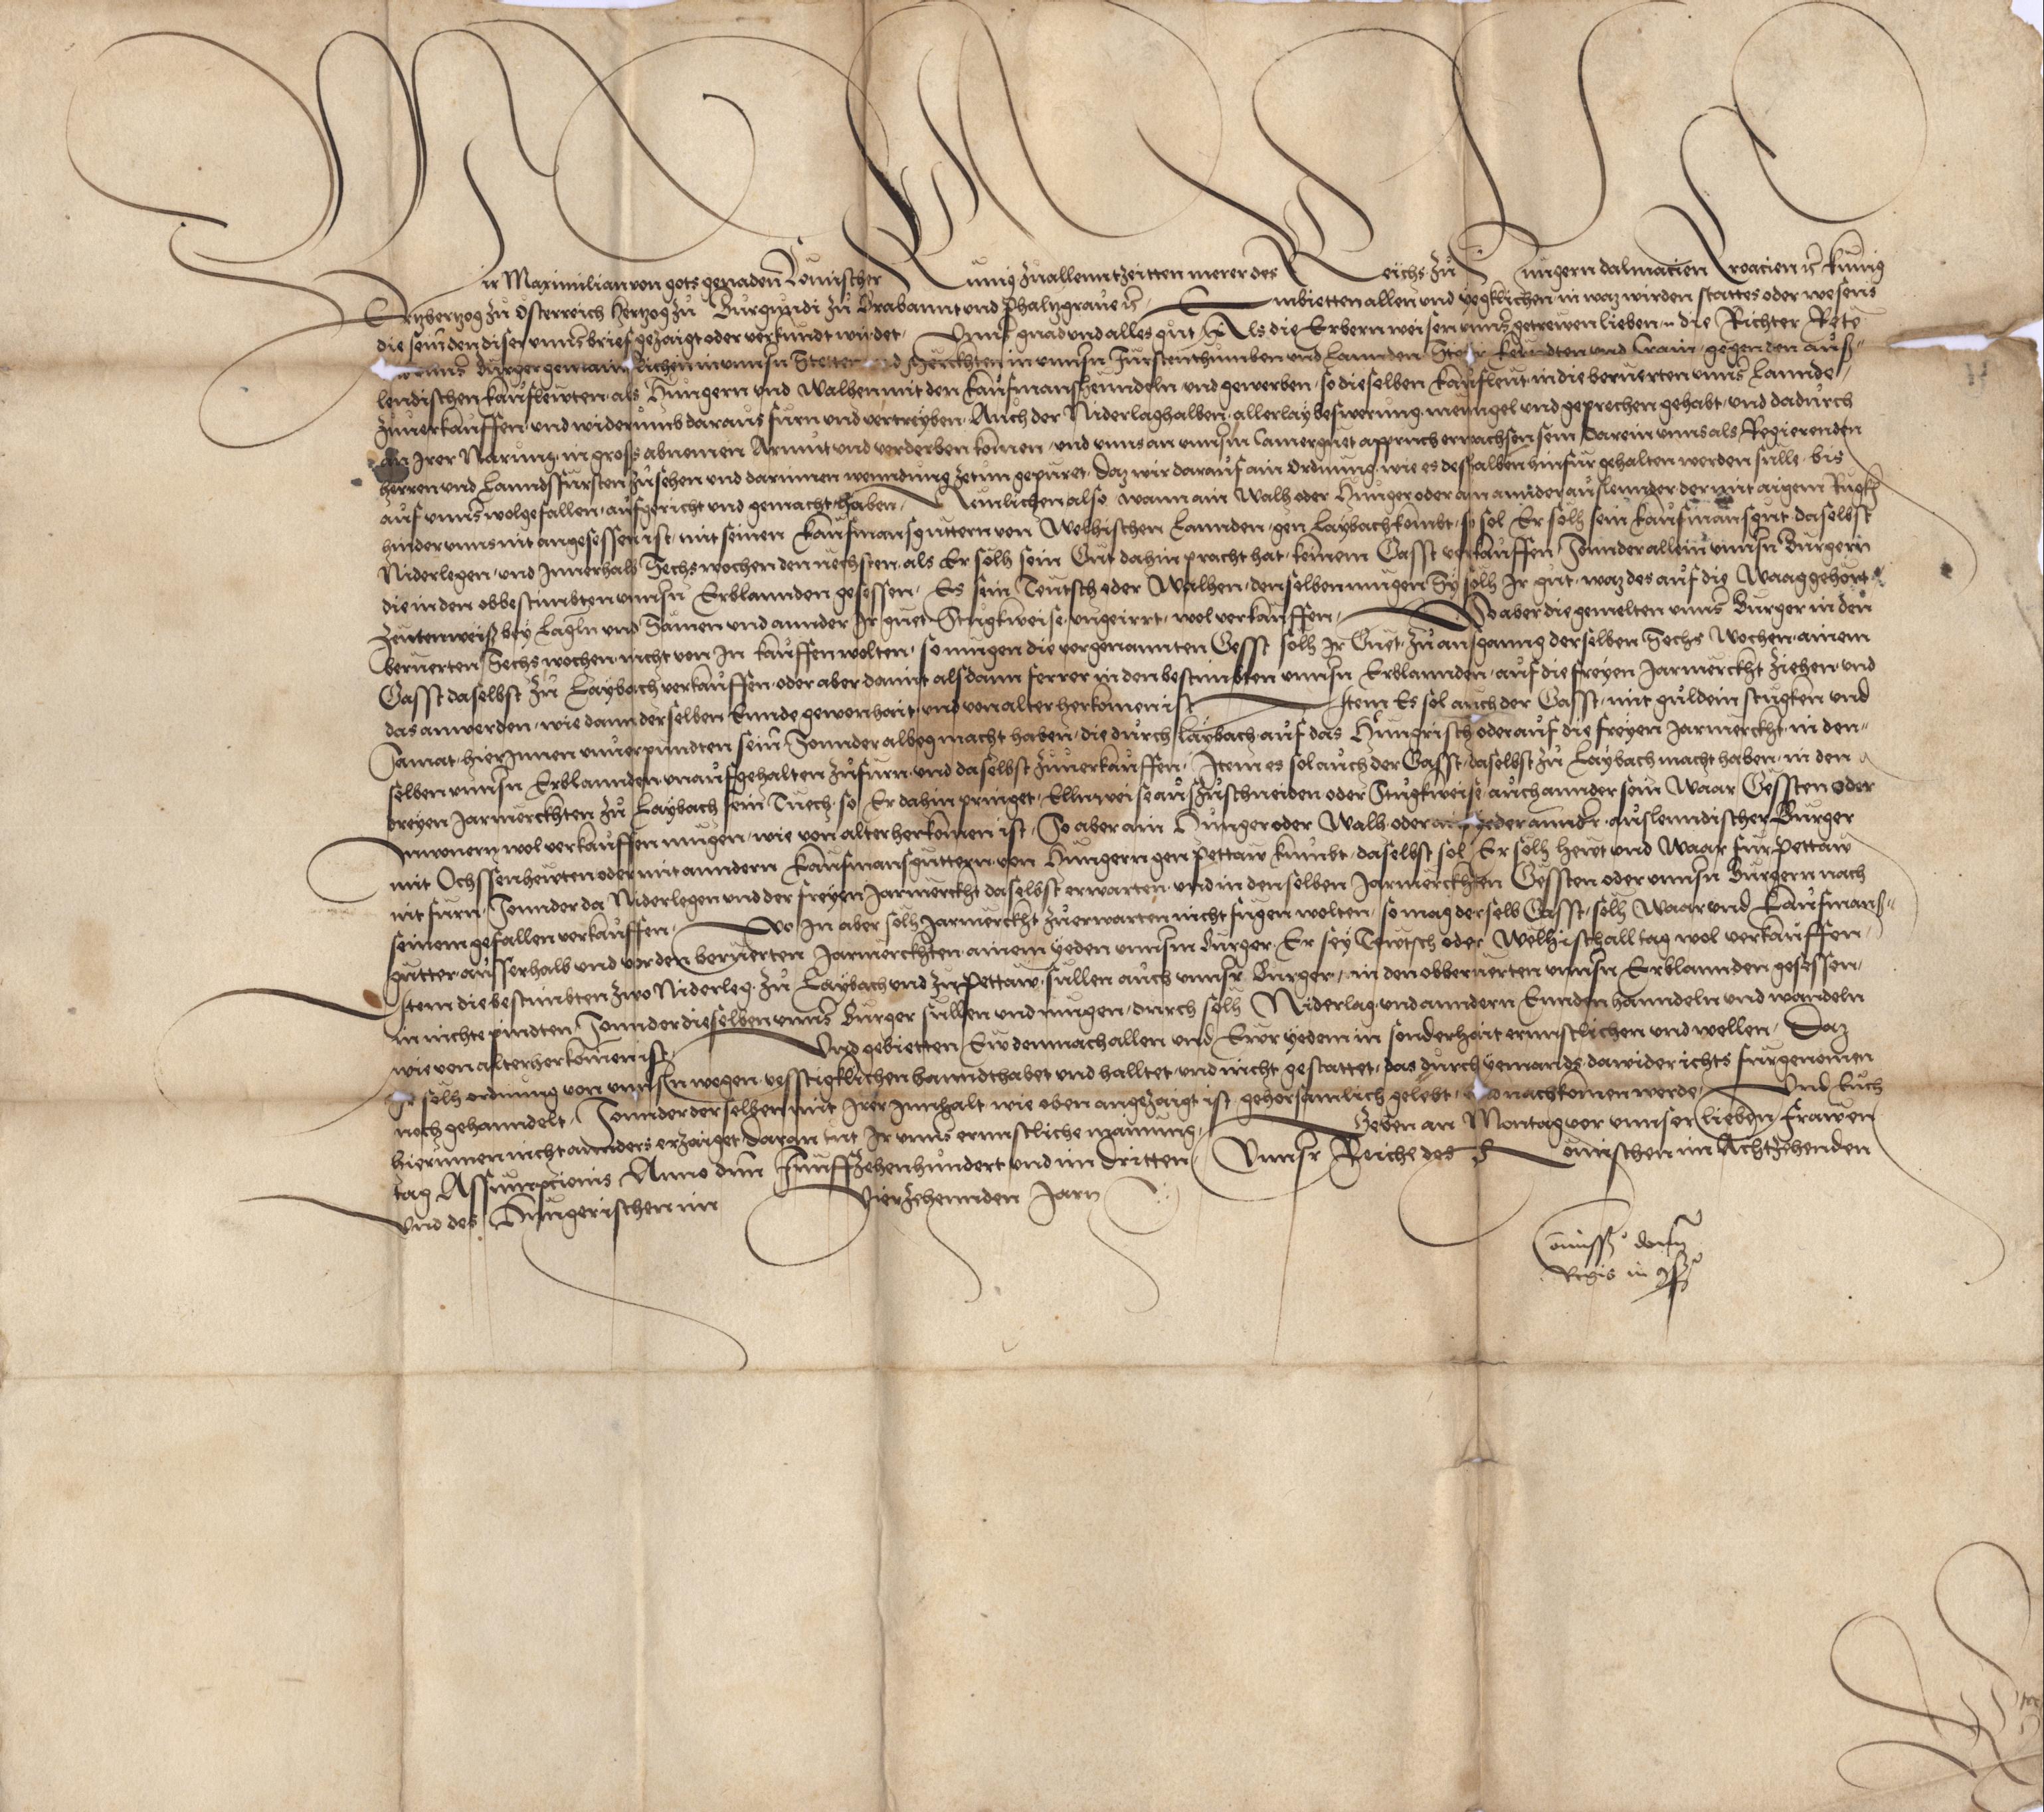 Wir Maximilian von gots genaden Römischer Kunig zuallenntzeitten merer des Reichs zu Hungern dalmacien Croacien ꝛc̄ kunig
Ertzhertzog zu Österreich Hertzog zu Burgundi zu Brabannt und Phaltzgraue ꝛc̄ Embietten allen und yegklichen in waz wirden stattes oder wesens
die sein den diser unns̄ brief gezaigt oder verkundt wirdet Unns̄ gnad und alles gut Als die Erbern weisen unns̄ getrewen lieben n die Richter Rete
unns̄ burger gemainlichen in unnsn̄ Stetten und Merckhten in unnsn̄ Furstenthumben und Lannden Steir kernndten und Crain gegen den auß-
lendischen kaufleẅten als Hungern und Walhen mit den kaufmanshenndeln und gewerben so dieselben kaufleut in die beruerten unns̄ Lannde
zuuerkauffen und widerumb daraus furn und vertreyben Auch der Niderlag halben allerlay beswerung menngel und geprechen gehabt und dadurch
an Irer Narung in gross abnemen Armut und verderben komen und unns an unnsm̄ Camerguet abpruch erwachsen sein Darein unns als Regierenden
herren und Lanndsfursten zusehen und darinnen wenndung zetun gepuret Daz wir darauf ain Ordnung wie es deshalben hinfur gehalten werden sulle bis
auf unns̄ wolgefallen aufgericht und gemacht haben Nemlichen also wann ain Walh oder Hunger oder ain annder auslennder der mit aigem Rugkh
hinder unns nit angesessen ist mit seinen kaufmansguttern von Welhischen Lannden gen Laybach kombt so sol Er solh sein kaufmansgut daselbst
Niderlegen und Innerhalb Sechs wochen den nechsten als Er solh sein Gut dahin pracht hat keinem Gasst verkauffen Sonnder allein unnsn̄ Burgern
die in den obbestimbten unnsn̄ Erblannden gesessen Es sein Teutsch oder Walhen denselben mugen Sy solh Ir gut waz des auf die Waag gehört
Zentenweiß bey Lagln und Samen und annder Ir guet Stugkweise ungeirrt wol verkauffen So aber die gemelten unns̄ Burger in den
beruerten Sechs wochen nicht von In kauffen wolten so mugen die vorgenannten Gesst solh Ir Guet zu ausganng derselben Sechs Wochen ainem
Gasst daselbst zu Laybach verkauffen oder aber damit alsdann ferrer in den bestimbten unnsn̄ Erblannden auf die freyen Jarmerckht ziehen und
das anwerden wie dann derselben Ennde gewonhait und von alter herkomen ist Item Es sol auch der Gasst mit guldein stugken und
Samat hierInnen unuerpundten sein Sonnder albeg macht haben die durch Laybach auf das Hungrisch oder auf die freyen Jarmerckht in den-
selben unnsn̄ Erblannden unaufgehalten zufurn und daselbst zuuerkauffen Item es sol auch der Gasst daselbst zu Laybach macht haben in den
dreyen Jarmerckhten zu Laybach sein Tuech so Er dahin pringet Ellnweise aufzuschneiden oder Stugkweise auch annder sein Waar Gessten oder
Inwonern wol verkauffen mugen wie von alter herkomen ist So aber ain Hunger oder Walh oder ain yeder annder auslenndischer Burger
mit Ochssenheẅten oder mit anndern kaufmansguttern von Hungern gen Pettaw kumbt daselbst sol Er solh heẅt und Waar fur Pettaw
nit furn Sonnder da Niderlegen und der freyen Jarmerckht daselbst erwarten und in denselben Jarmerckhten Gessten oder unnsn̄ Burgern nach
seinem gefallen verkauffen Wo In aber solh Jarmerckht zuerwarten nicht fugen wolten so mag derselb Gasst solh Waar und kaufmanß-
gutter ausserhalb und vor den beruerten Jarmerckhten ainem yeden unnsm̄ Burger Er sey Teẅtsch oder Welhisch all tag wol verkauffen
Item die bestimbten zwo Niderleg zu Laybach und zu Pettaw sullen auch unnsr̄ Burger in den obberuerten unnsn̄ Erblannden gesessen
in nichte pindten Sonnder dieselben unns̄ Burger sullen und mugen durch solh Niderlag und anndern Ennden hanndeln und wandeln
wie von alter herkomen ist Und gebietten Eẅ demnach allen und Eẅr yedem in sonderhait ernnstlichen und wellen Daz
Ir solh ordnung von unnsern wegen vesstigklichen hanndthabet und halltet und nicht gestattet das durch yemands dawider ichts furgenomen
noch gehanndelt Sonnder derselben mit Irer Innhalt wie oben angezaigt ist gehorsamlich gelebt und nachkomen werde Und Euch
hierinnen nicht annders erzaiget daran tut Ir unns̄ ernnstliche maynung Geben an Montag vor unnser lieben Frawen
tag Assumpcionis Anno dm̄ Funffzehenhundert und im dritten Unnsr̄ Reiche des Römischen im Achtzehenden
und des Hungerischen im Vierzehennden Jarn
Comissio domini
Regis in consilio